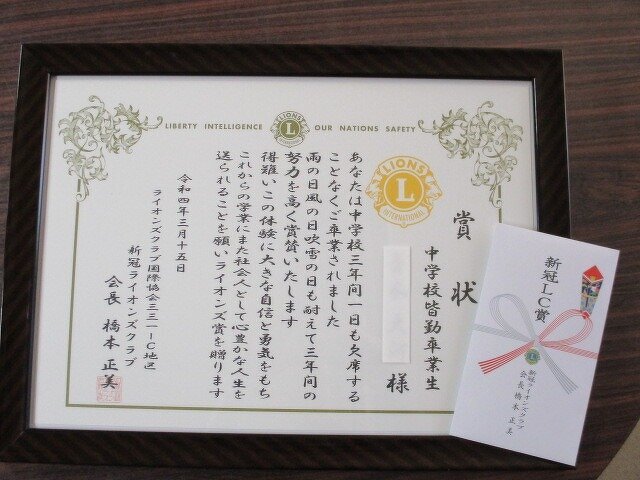 LIBERTY INTELLIGENCE OUR NATIONS SAFETY
LIONS
L
LIONS
L
INTERNATIONAL
賞状
中学校皆勤卒業生
様
あなたは中学校三年間一日も欠席する
ことなくご卒業されました
雨の日風の日吹雪の日も耐えて三年間の
努力を高く賞賛いたします
得難いこの体験に大きな自信と勇気をもち
これからの学業にまた社会人として心豊かな人生を
送られることを願いライオンズ賞を贈ります
令和四年三月十五日
ライオンズクラブ国際協会三三一-C地区
新冠ライオンズクラブ
会長 橋本正美
新冠LC賞
新冠ライオンズクラブ
会長 橋本正美